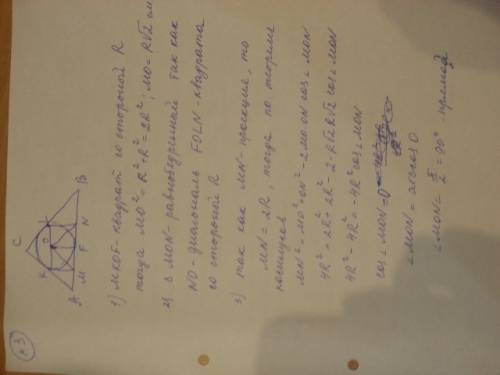 №3
C
K L
O
A M F N B
1) MKOF-квадрат со стороной R
тогда MO² = R²+R² = 2R²; MO = R√2
2) Δ MON - равнобедренный так как
NO - диагональ FOLN - квадрата
со стороной R
3) так как MN - проекция, то
MN = 2R, тогда по теореме
косинусов
MN² = MO² + ON² - 2MO·ON cos∠MON
4R² = 2R² + 2R² - 2·R√2 R√2 cos∠MON
4R² - 4R² = -4R² cos∠MON
cos∠MON = 0
∠MON = arccos 0
∠MON = π/2 = 90° прямой